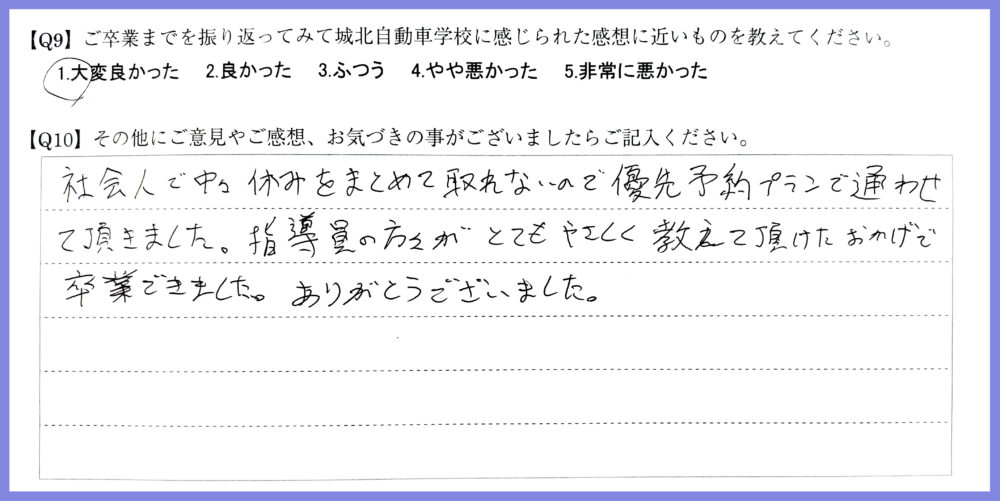 【Q9】ご卒業までを振り返ってみて城北自動車学校に感じられた感想に近いものを教えてください。
1.大変良かった 2.良かった 3.ふつう 4.やや悪かった 5.非常に悪かった
【Q10】その他にご意見やご感想、お気づきの事がございましたらご記入ください。
社会人で中々休みをまとめて取れないので優先予約プランで通わせ
て頂きました。指導員の方々がとてもやさしく教えて頂けたおかげで
卒業できました。ありがとうございました。